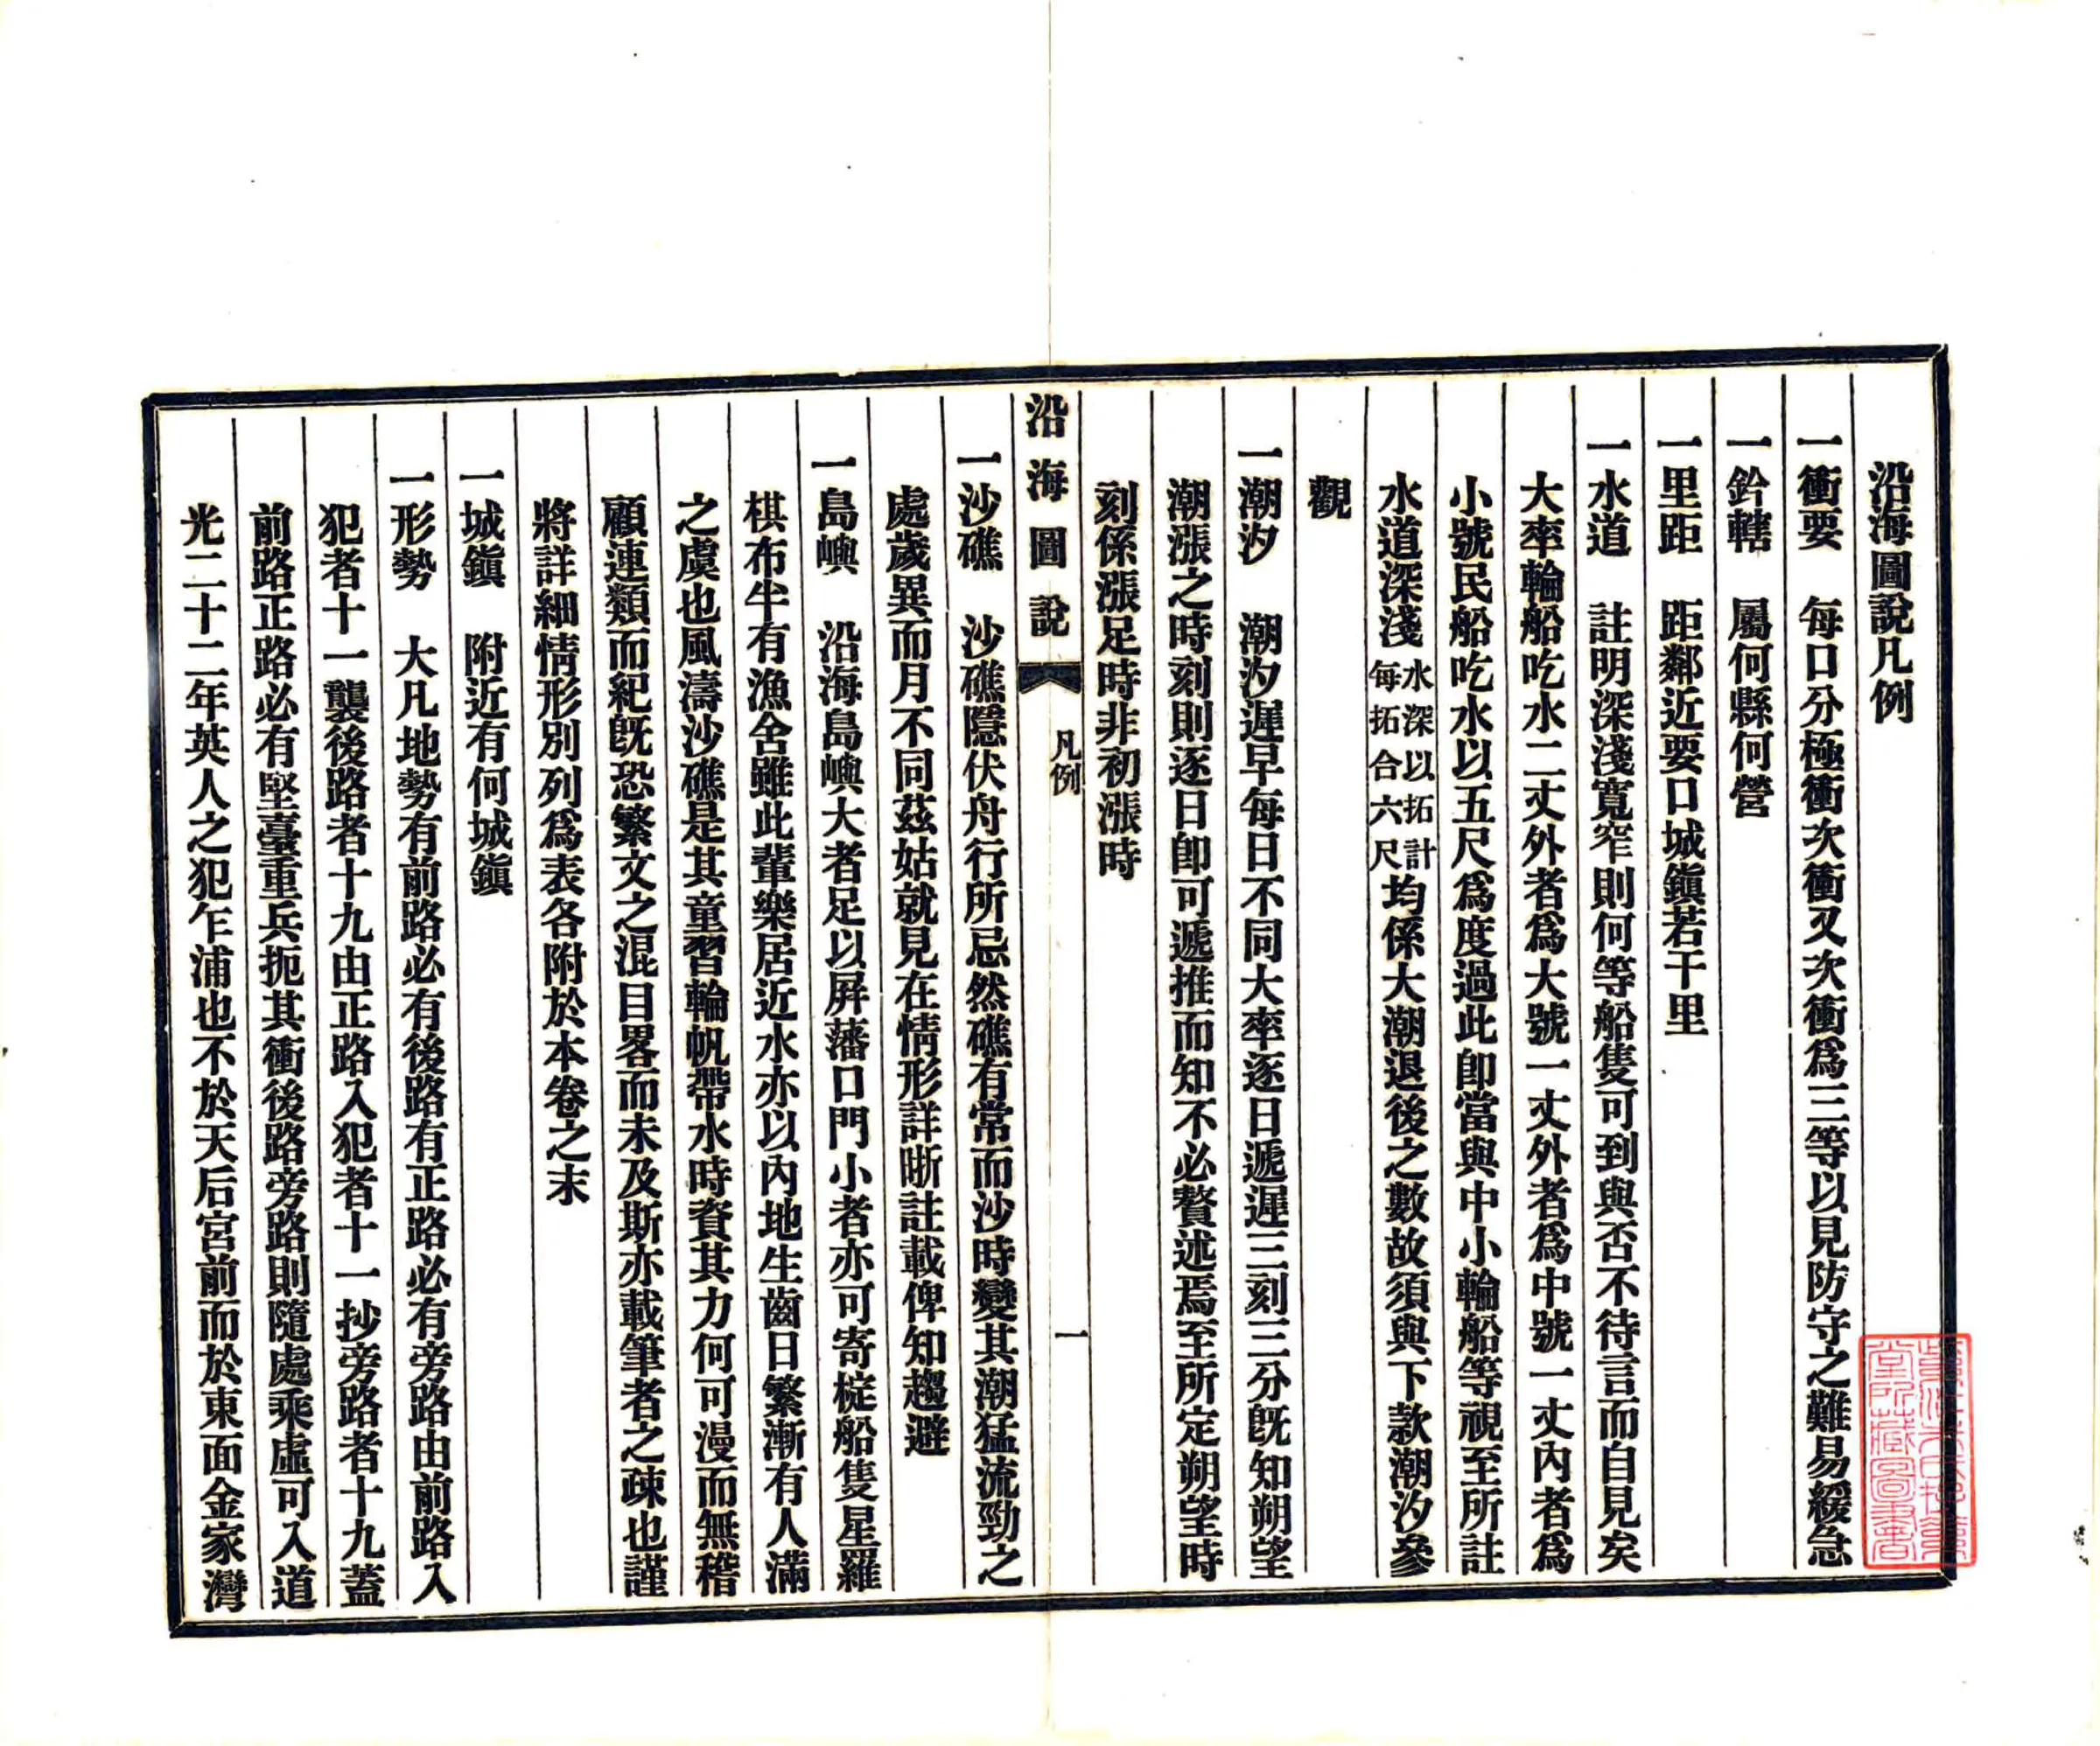 沿海圖說凡例
一衝要　每口分極衝次衝又次衝爲三等以見防守之難易緩急
一鈐轄　屬何縣何營
一里距　距鄰近要口城鎭若干里
一水道　註明深淺寬窄則何等船隻可到與否不待言而自見矣
大率輪船吃水二丈外者爲大號一丈外者爲中號一丈內者爲
小號民船吃水以五尺爲度過此卽當與中小輪船等視至所註
水道深淺水深以拓計每拓合六尺均係大潮退後之數故須與下款潮汐參
觀
一潮汐　潮汐遲早每日不同大率逐日遞遲三刻三分旣知朔望
潮漲之時刻則逐日卽可遞推而知不必贅述焉至所定朔望時
刻係漲足時非初漲時
沿海圖說　凡例　一
一沙礁　沙礁隱伏舟行所忌然礁有常而沙時變其潮猛流勁之
處歲異而月不同茲姑就見在情形詳晰註載俾知趨避
一島嶼　沿海島嶼大者足以屛藩口門小者亦可寄椗船隻星羅
棋布半有漁舍雖此輩樂居近水亦以內地生齒日繁漸有人滿
之虞也風濤沙礁是其童習輪帆帶水時資其力何可漫而無稽
顧連類而紀旣恐繁文之混目畧而未及斯亦載筆者之疎也謹
將詳細情形別列爲表各附於本卷之末
一城鎭　附近有何城鎭
一形勢　大凡地勢有前路必有後路有正路必有旁路由前路入
犯者十一襲後路者十九由正路入犯者十一抄旁路者十九蓋
前路正路必有堅臺重兵扼其衝後路旁路則隨處乘虛可入道
光二十二年英人之犯乍浦也不於天后宮前而於東面金家灣
堂所藏圖書